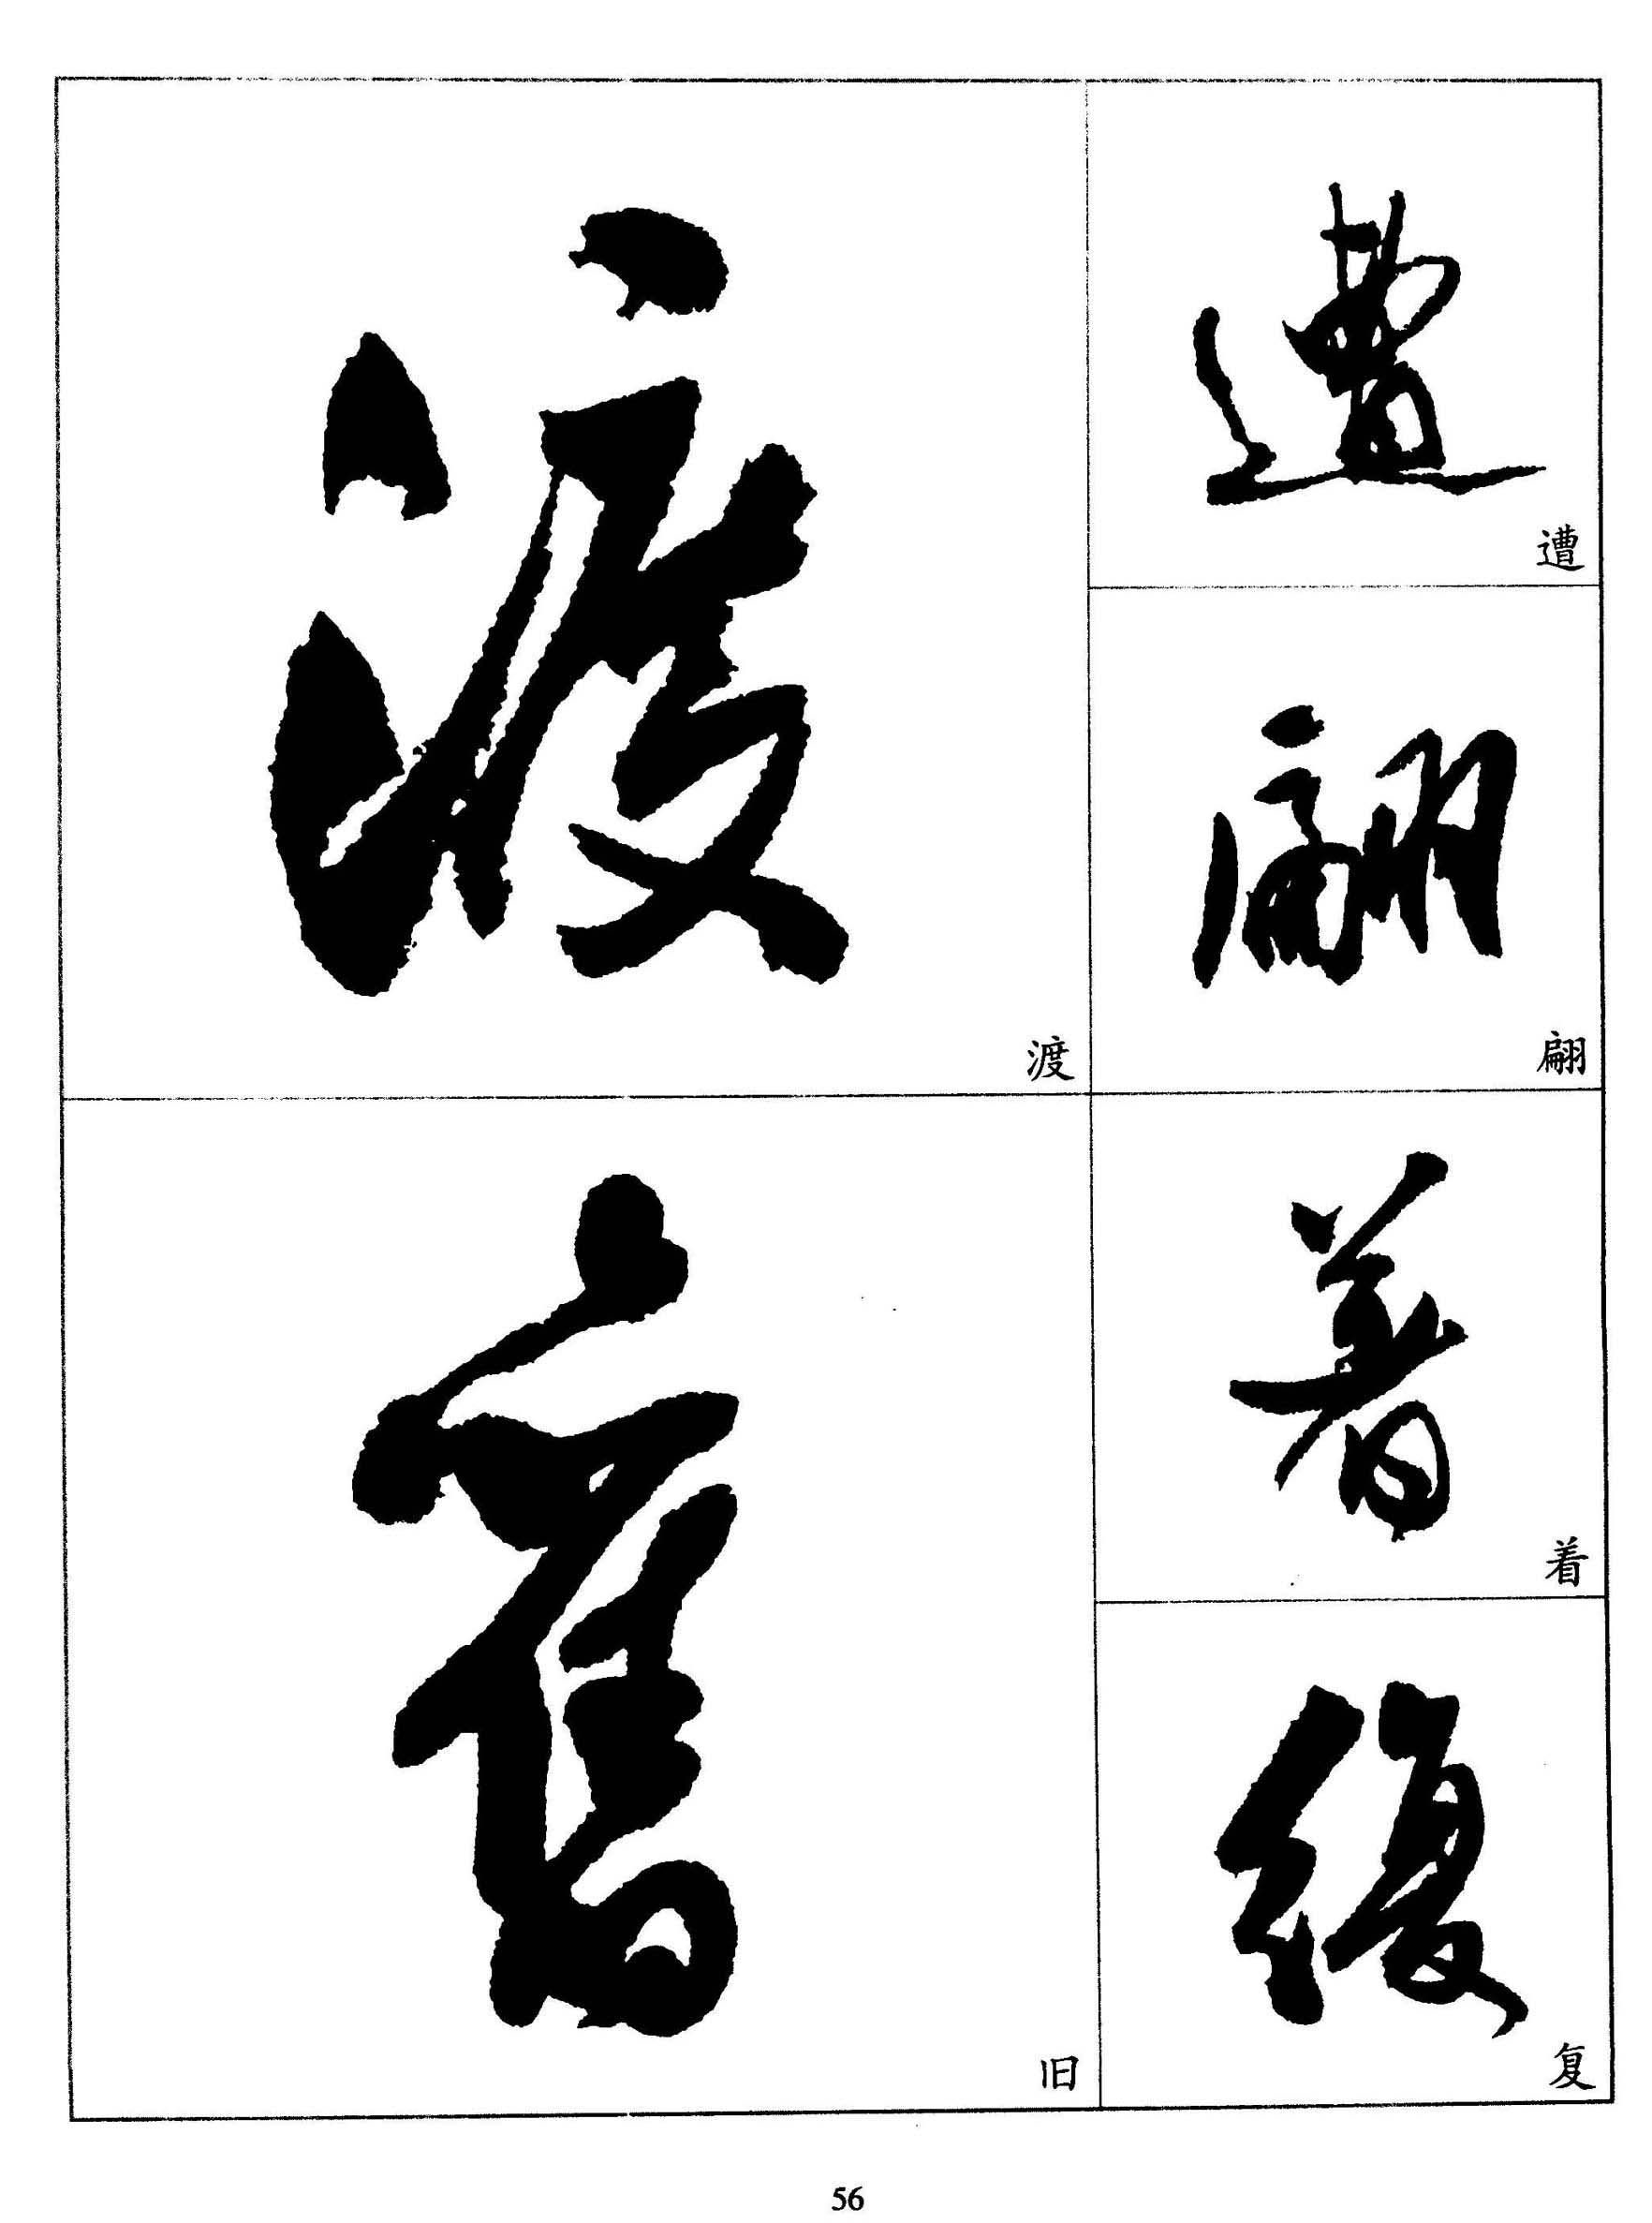 遭
遭
翩
翩
渡
渡
着
着
復
复
舊
旧
56